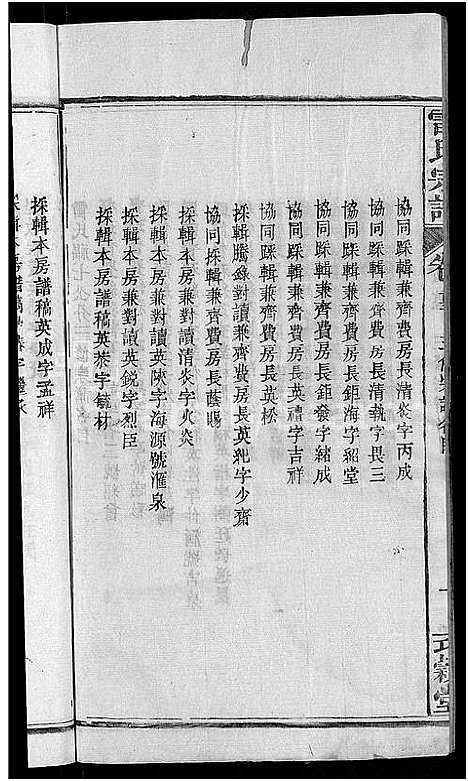 雷氏宗譜
協同踩輯兼齊費房長清炎字丙成
協同踩輯兼齊費房長清執字畏三
協同踩輯兼齊費房長鉅海字紹堂
協同踩輯兼齊費房長鉅發字緒成
協同踩輯兼齊費房長英禮字吉祥
協同踩輯兼齊費房長英松
採輯謄錄對讀兼齊費房長英紀字少齋
協同採輯兼齊費房長蔭賜
採輯本房譜稿兼對讀清炎字火炎
採輯本房譜稿兼對讀英陝字海源號滙泉
採輯本房譜稿兼對讀英鋭字烈臣
採輯本房譜稿英棻字毓材
採輯本房譜稿英成字孟祥